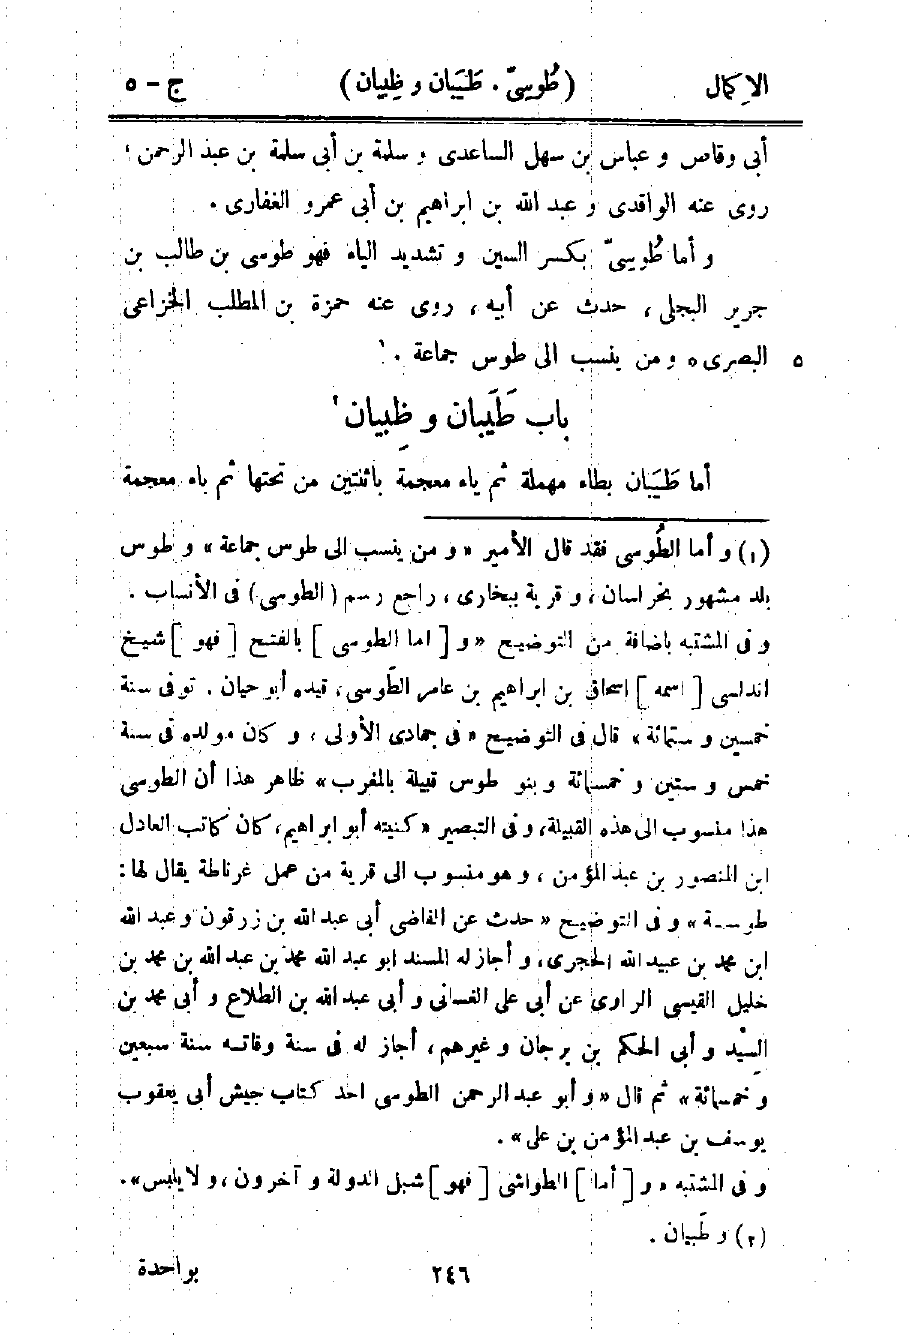 الاكمال (طُوسِىّ . طَيَبان و ظِبيان) ج - ٥
أبى وقاص و عباس بن سهل الساعدى و سلمة بن أبى سلمة بن عبد الرحمن ،
روى عنه الواقدى و عبد الله بن ابراهيم بن أبى عمرو الغفارى .
و أما طُوسِىّ بكسر السين و تشديد الياء فهو طوسى بن طالب بن
جرير البجلى ، حدث عن أبيه ، روى عنه حمزة بن المطلب الخزاعى
٥ البصرى ه و من ينسب الى طوس جماعة . ١
باب طَيَبان و ظِبيان ٢
أما طَيَبان بطاء مهملة ثم ياء معجمة باثنتين من تحتها ثم باء معجمة
(١) و أما الطُوسى فقد قال الأمير « و من ينسب الى طوس جماعة » و طوس
بلد مشهور بخراسان ، و قرية ببخارى ، راجع رسم ( الطوسى ) فى الأنساب .
و فى المشتبه باضافة من التوضيح « و [ اما الطوسى ] بالفتح [ فهو ] شيخ
اندلسى [ اسمه ] اسحاق بن ابراهيم بن عامر الطَّوسى ، قيده أبو حيان . توفى سنة
خمسين و ستمائة » قال فى التوضيح « فى جمادى الأولى ، و كان مولده فى سنة
خمس و ستين و خمسمائة و بنو طوس قبيلة بالمغرب » ظاهر هذا أن الطوسى
هذا منسوب الى هذه القبيلة ، و فى التبصير « كنيته أبو ابراهيم ، كان كاتب العادل
ابن المنصور بن عبد المؤمن ، و هو منسوب الى قرية من عمل غرناطة يقال لها :
طوسة » و فى التوضيح « حدث عن القاضى أبى عبد الله بن زرقون و عبد الله
ابن محمد بن عبيد الله الحجرى ، و أجاز له المسند ابو عبد الله محمد بن عبد الله بن محمد بن
خليل القيسى الراوى عن أبى على الغسانى و أبى عبد الله بن الطلاع و أبى محمد بن
السِّيْد و أبى الحكم بن برجان و غيرهم ، أجاز له فى سنة وفاته سنة سبعين
و خمسمائة » ثم قال « و أبو عبد الرحمن الطوسى احد كتاب جيش أبى يعقوب
يوسف بن عبد المؤمن بن على » .
و فى المشتبه « و [ أما ] الطواشى [ فهو ] شبل الدولة و آخرون ، و لا يلبس » .
(٢) و طَبيان .
٢٤٦ بواحدة